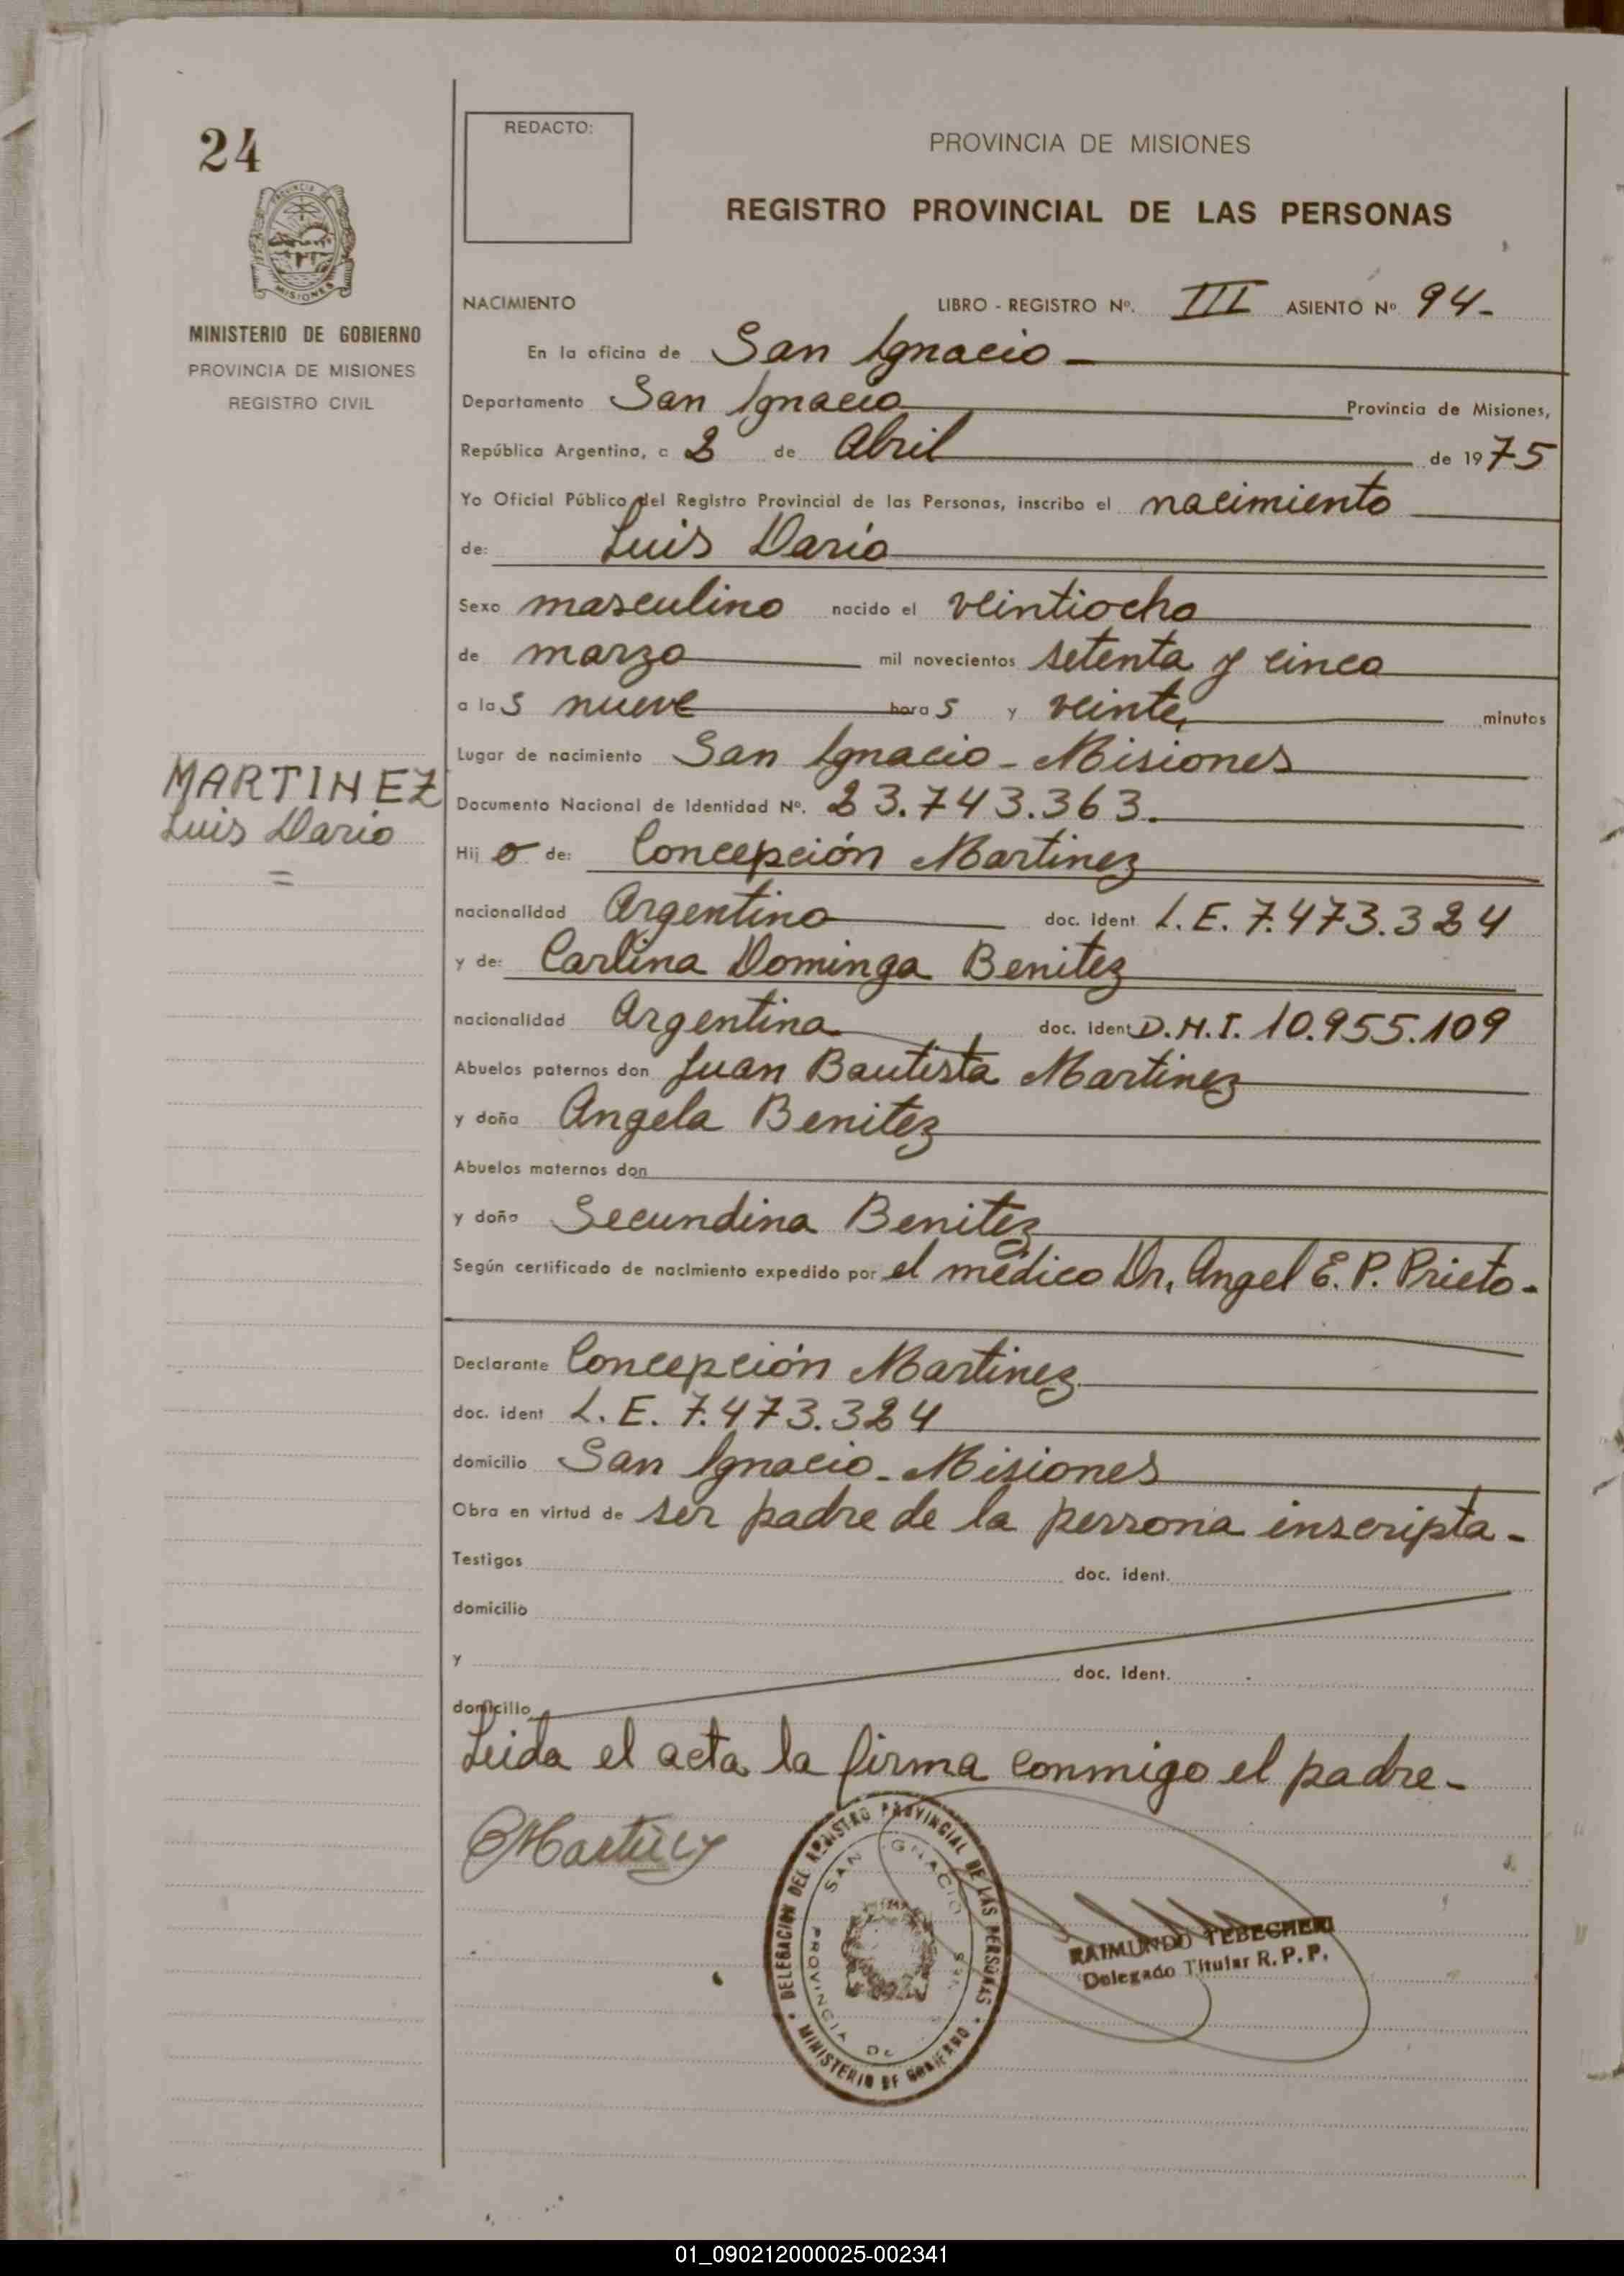 24
REDACTO:
PROVINCIA DE MISIONES
REGISTRO PROVINCIAL DE LAS PERSONAS
PROVINCIA DE
MISIONES
MINISTERIO DE GOBIERNO
PROVINCIA DE MISIONES
REGISTRO CIVIL
NACIMIENTO LIBRO - REGISTRO Nº. III ASIENTO Nº 94-
En la oficina de San Ignacio -
Departamento San Ignacio Provincia de Misiones,
República Argentina, a 2 de Abril de 1975
Yo Oficial Público del Registro Provincial de las Personas, inscribo el nacimiento
de: Luis Dario
Sexo masculino nacido el veintiocho
de marzo mil novecientos setenta y cinco
a las nueve horas y veinte minutos
Lugar de nacimiento San Ignacio - Misiones
MARTINEZ
Luis Dario
=
Documento Nacional de Identidad Nº. 23.743.363.
Hijo de: Concepción Martinez
nacionalidad Argentino doc. ident. L.E. 7.473.324
y de: Carlina Dominga Benitez
nacionalidad Argentina doc. Ident D.N.I. 10.955.109
Abuelos paternos don Juan Bautista Martinez
y doña Angela Benitez
Abuelos maternos don
y doña Secundina Benitez
Según certificado de nacimiento expedido por el médico Dr. Angel E. P. Prieto -
Declarante Concepción Martinez
doc. ident L. E. 7.473.324
domicilio San Ignacio - Misiones
Obra en virtud de ser padre de la persona inscripta -
Testigos doc. ident.
domicilio
y doc. Ident.
domicilio
Leida el acta la firma conmigo el padre -
CMartinez
DELEGACION DEL REGISTRO PROVINCIAL DE LAS PERSONAS
SAN IGNACIO
PROVINCIA DE
MINISTERIO DE GOBIERNO
RAIMUNDO TEBECHERI
Delegado Titular R. P. P.
01_090212000025-002341